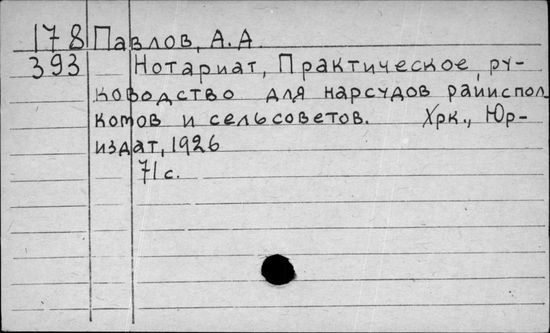 178 Павлов, А.А.
393 Нотариат, Практическое ру-
ководство для нарсудов райиспол
комов и сельсоветов. Хрк., Юр-
издат, 1926
71 с.